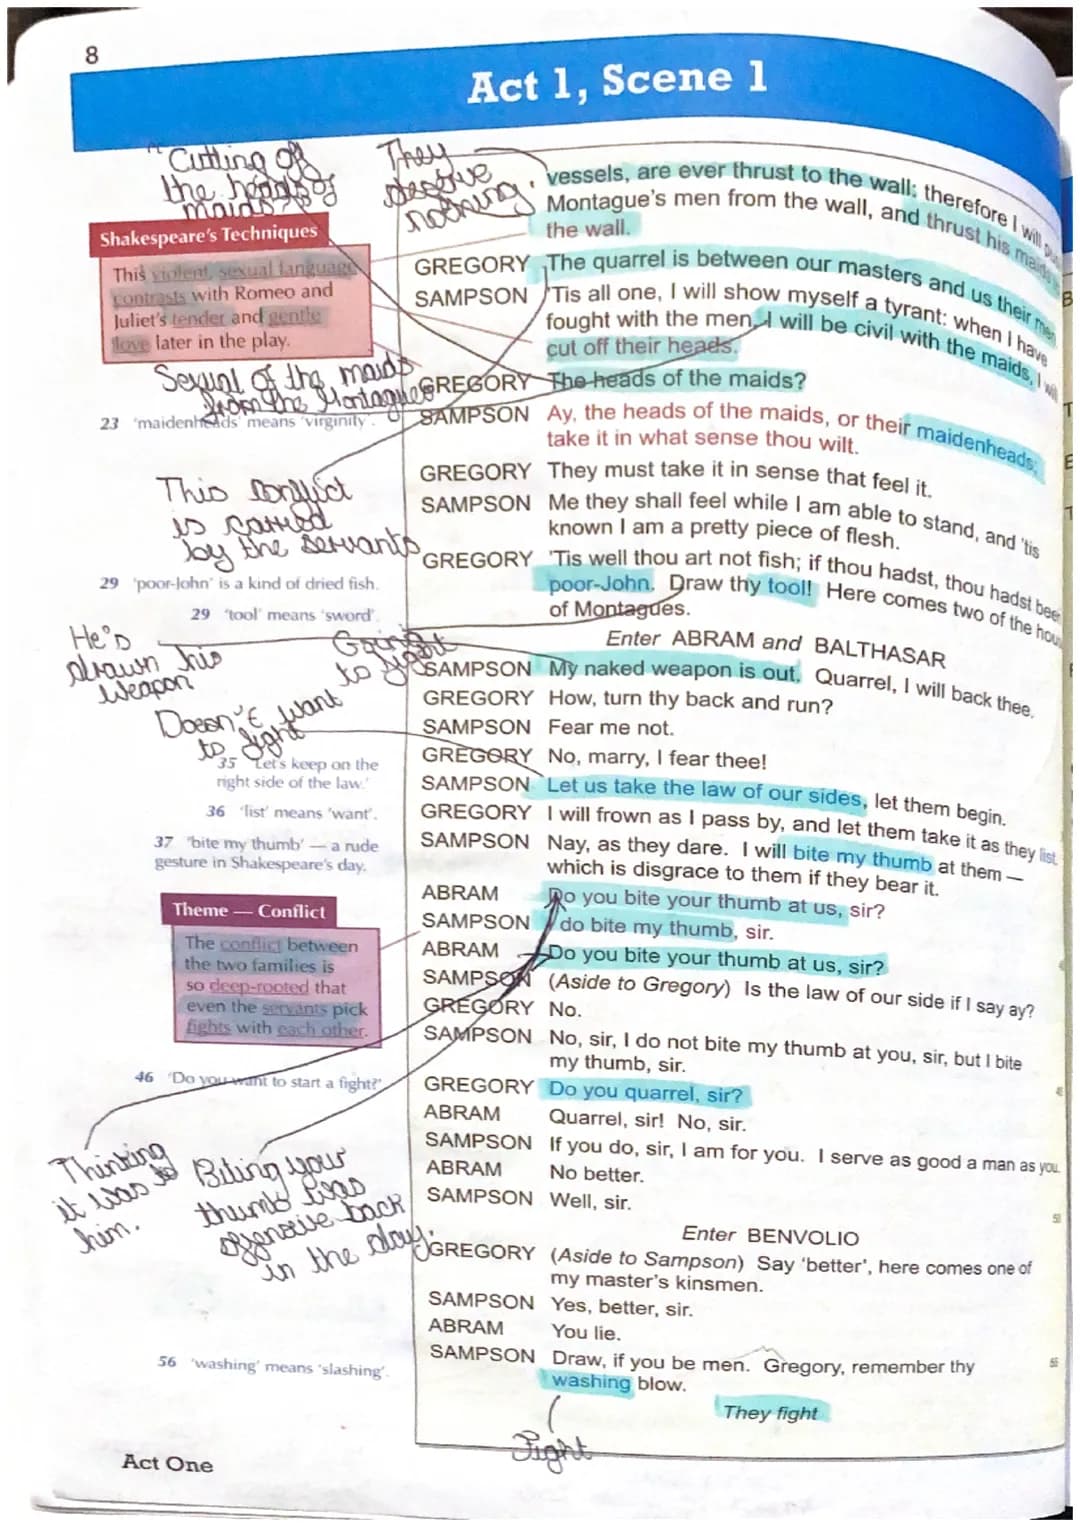 8
Act 1, Scene 1
"Cutting of
the heads of
maids?"
They
deserve
nothing.
vessels, are ever thrust to the wall; therefore I will
Montague's men from the wall, and thrust his maids
the wall.
Shakespeare's Techniques
This violent, sexual language
contrasts with Romeo and
Juliet's tender and gentle
love later in the play.
GREGORY The quarrel is between our masters and us their men
SAMPSON 'Tis all one, I will show myself a tyrant: when I have
fought with the men, I will be civil with the maids, I will
cut off their heads.
GREGORY The heads of the maids?
Sexual of the maids
from the Montagues
23 'maidenheads' means 'virginity'.
SAMPSON Ay, the heads of the maids, or their maidenheads;
take it in what sense thou wilt.
GREGORY They must take it in sense that feel it.
SAMPSON Me they shall feel while I am able to stand, and 'tis
known I am a pretty piece of flesh.
This conflict
is carried
by the servants
GREGORY 'Tis well thou art not fish; if thou hadst, thou hadst been
poor-John. Draw thy tool! Here comes two of the
of Montagues.
29 'poor-John' is a kind of dried fish.
29 'tool' means 'sword'.
Enter ABRAM and BALTHASAR
He's
drawn his
weapon
Going
to fight
SAMPSON My naked weapon is out. Quarrel, I will back thee.
GREGORY How, turn thy back and run?
SAMPSON Fear me not.
GREGORY No, marry, I fear thee!
Doesn't want
to fight
35 'Let's keep on the
right side of the law.'
SAMPSON Let us take the law of our sides, let them begin.
GREGORY I will frown as I pass by, and let them take it as they list.
36 'list' means 'want'.
SAMPSON Nay, as they dare. I will bite my thumb at them —
which is disgrace to them if they bear it.
37 'bite my thumb' — a rude
gesture in Shakespeare's day.
ABRAM Do you bite your thumb at us, sir?
SAMPSON I do bite my thumb, sir.
ABRAM Do you bite your thumb at us, sir?
Theme — Conflict
The conflict between
the two families is
so deep-rooted that
even the servants pick
fights with each other.
SAMPSON (Aside to Gregory) Is the law of our side if I say ay?
GREGORY No.
SAMPSON No, sir, I do not bite my thumb at you, sir, but I bite
my thumb, sir.
46 'Do you want to start a fight?'
GREGORY Do you quarrel, sir?
ABRAM Quarrel, sir! No, sir.
SAMPSON If you do, sir, I am for you. I serve as good a man as you.
ABRAM No better.
SAMPSON Well, sir.
Thinking
it was to
him.
Biting your
thumb was
offensive back
in the day.
50
Enter BENVOLIO
GREGORY (Aside to Sampson) Say 'better', here comes one of
my master's kinsmen.
SAMPSON Yes, better, sir.
ABRAM You lie.
SAMPSON Draw, if you be men. Gregory, remember thy
washing blow.
55
56 'washing' means 'slashing'.
They fight
Fight
Act One